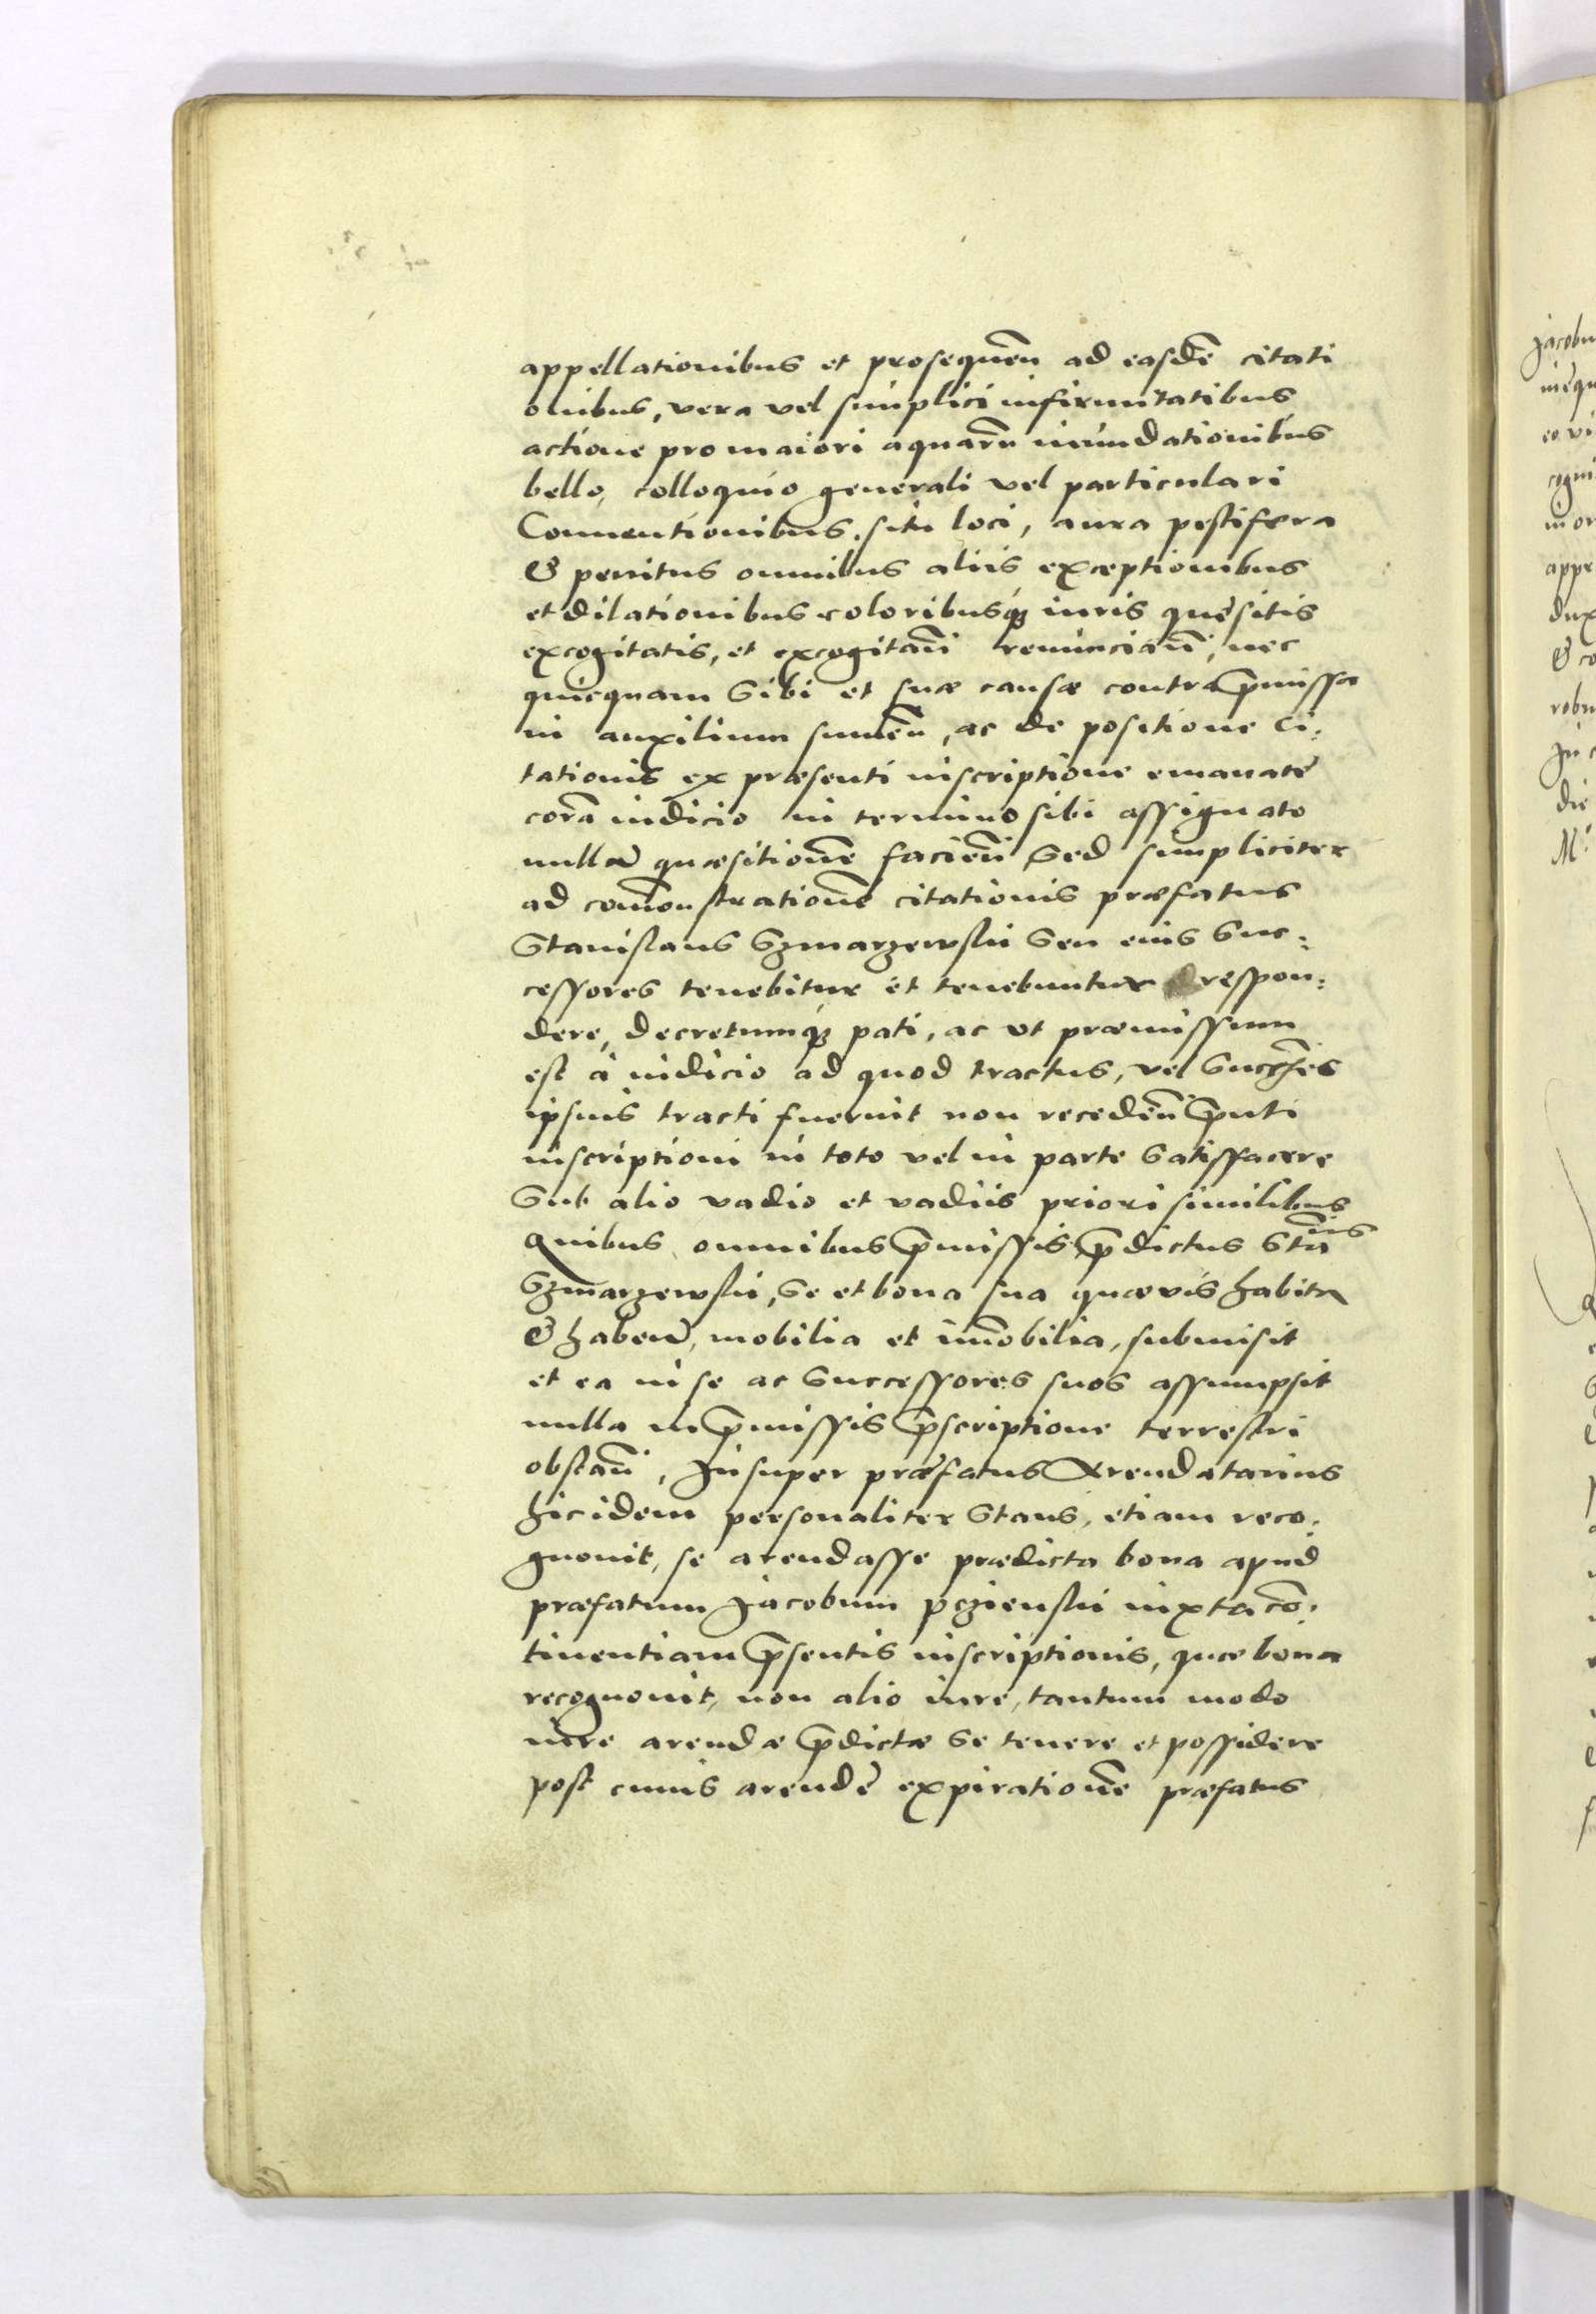 appellationibus et prosequen̄ ad easdē citati
onibus, vera vel simplici infirmitatibus
actione pro maiori aquarū inundationibus
bello, colloquio generali vel particulari
Conuentionibus, situ loci, aura pestifera
& penitus omnibus aliis exceptionibus
et dilationibus coloribusq₃ iuris quęsitis
excogitatis, et excogitan̄ renuncian̄, nec
quicquam sibi et suæ causæ contra p̄missa
in auxilium sumen̄, ac de positione ci:
tationis ex præsenti inscriptione emanatę
corā iudicio in termino sibi assignato
nullā quæsitionē facien̄ sed simpliciter
ad com̄onstrationē citationis præfatus
Stanislaus Gzmarzewskii seu eius suc:
cessores tenebitur et tenebuntur respon:
dere, decretumq₃ pati, ac ut præmissum
est à iudicio ad quod tractus, vel succ̄res
ipsius tracti fuerint non receden̄ p̄nti
inscriptioni in toto vel in parte satisfacere
sub alio vadio et vadiis priori similibus
Quibus omnibus p̄missis p̄dictus Stān̄us
Gzmarzewskii, se et bona sua quævis habita
& haben̄, mobilia et im̄obilia, submisit
et ea in se ac successores suos assumpsit
nulla in p̄missis p̄scriptione terrestri
obstan̄, Insuper præfatus Arendatarius
hic idem personaliter stans, etiam reco:
gnouit, se arendasse prædicta bona apud
præfatum Jacobum pczienskii iuxta cō:
tinentiam p̄sentis inscriptionis, quæ bona
recognouit, non alio iure, tantum modo
iure arendæ p̄dictæ se tenere et possidere
post cuius arendę expirationē præfatus